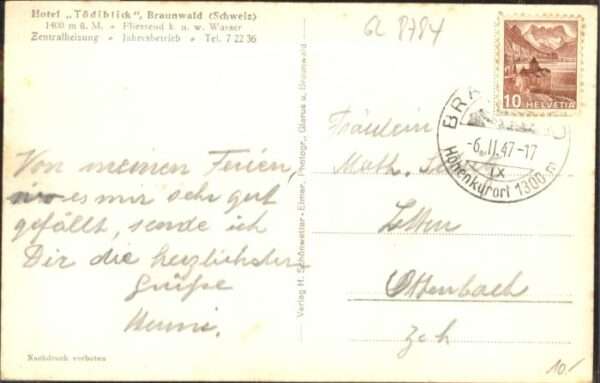 Hotel „Tödiblick", Braunwald (Schweiz)
1400 m ü. M. • Fliessend k. u. w. Wasser
Zentralheizung • Jahresbetrieb • Tel. 7 22 36
GL 8784
10 HELVETIA
BRA
-6.II.47-17
IX
Höhenkurort 1300 m
Von meinen Ferien,
wo es mir sehr gut
gefällt, sende ich
Dir die herzlichsten
Grüße
Verlag H. Schönwetter-Elmer, Photogr., Glarus u. Braunwald
Fräulein
Math.
Ottenbach
Zch
Nachdruck verboten
10.-